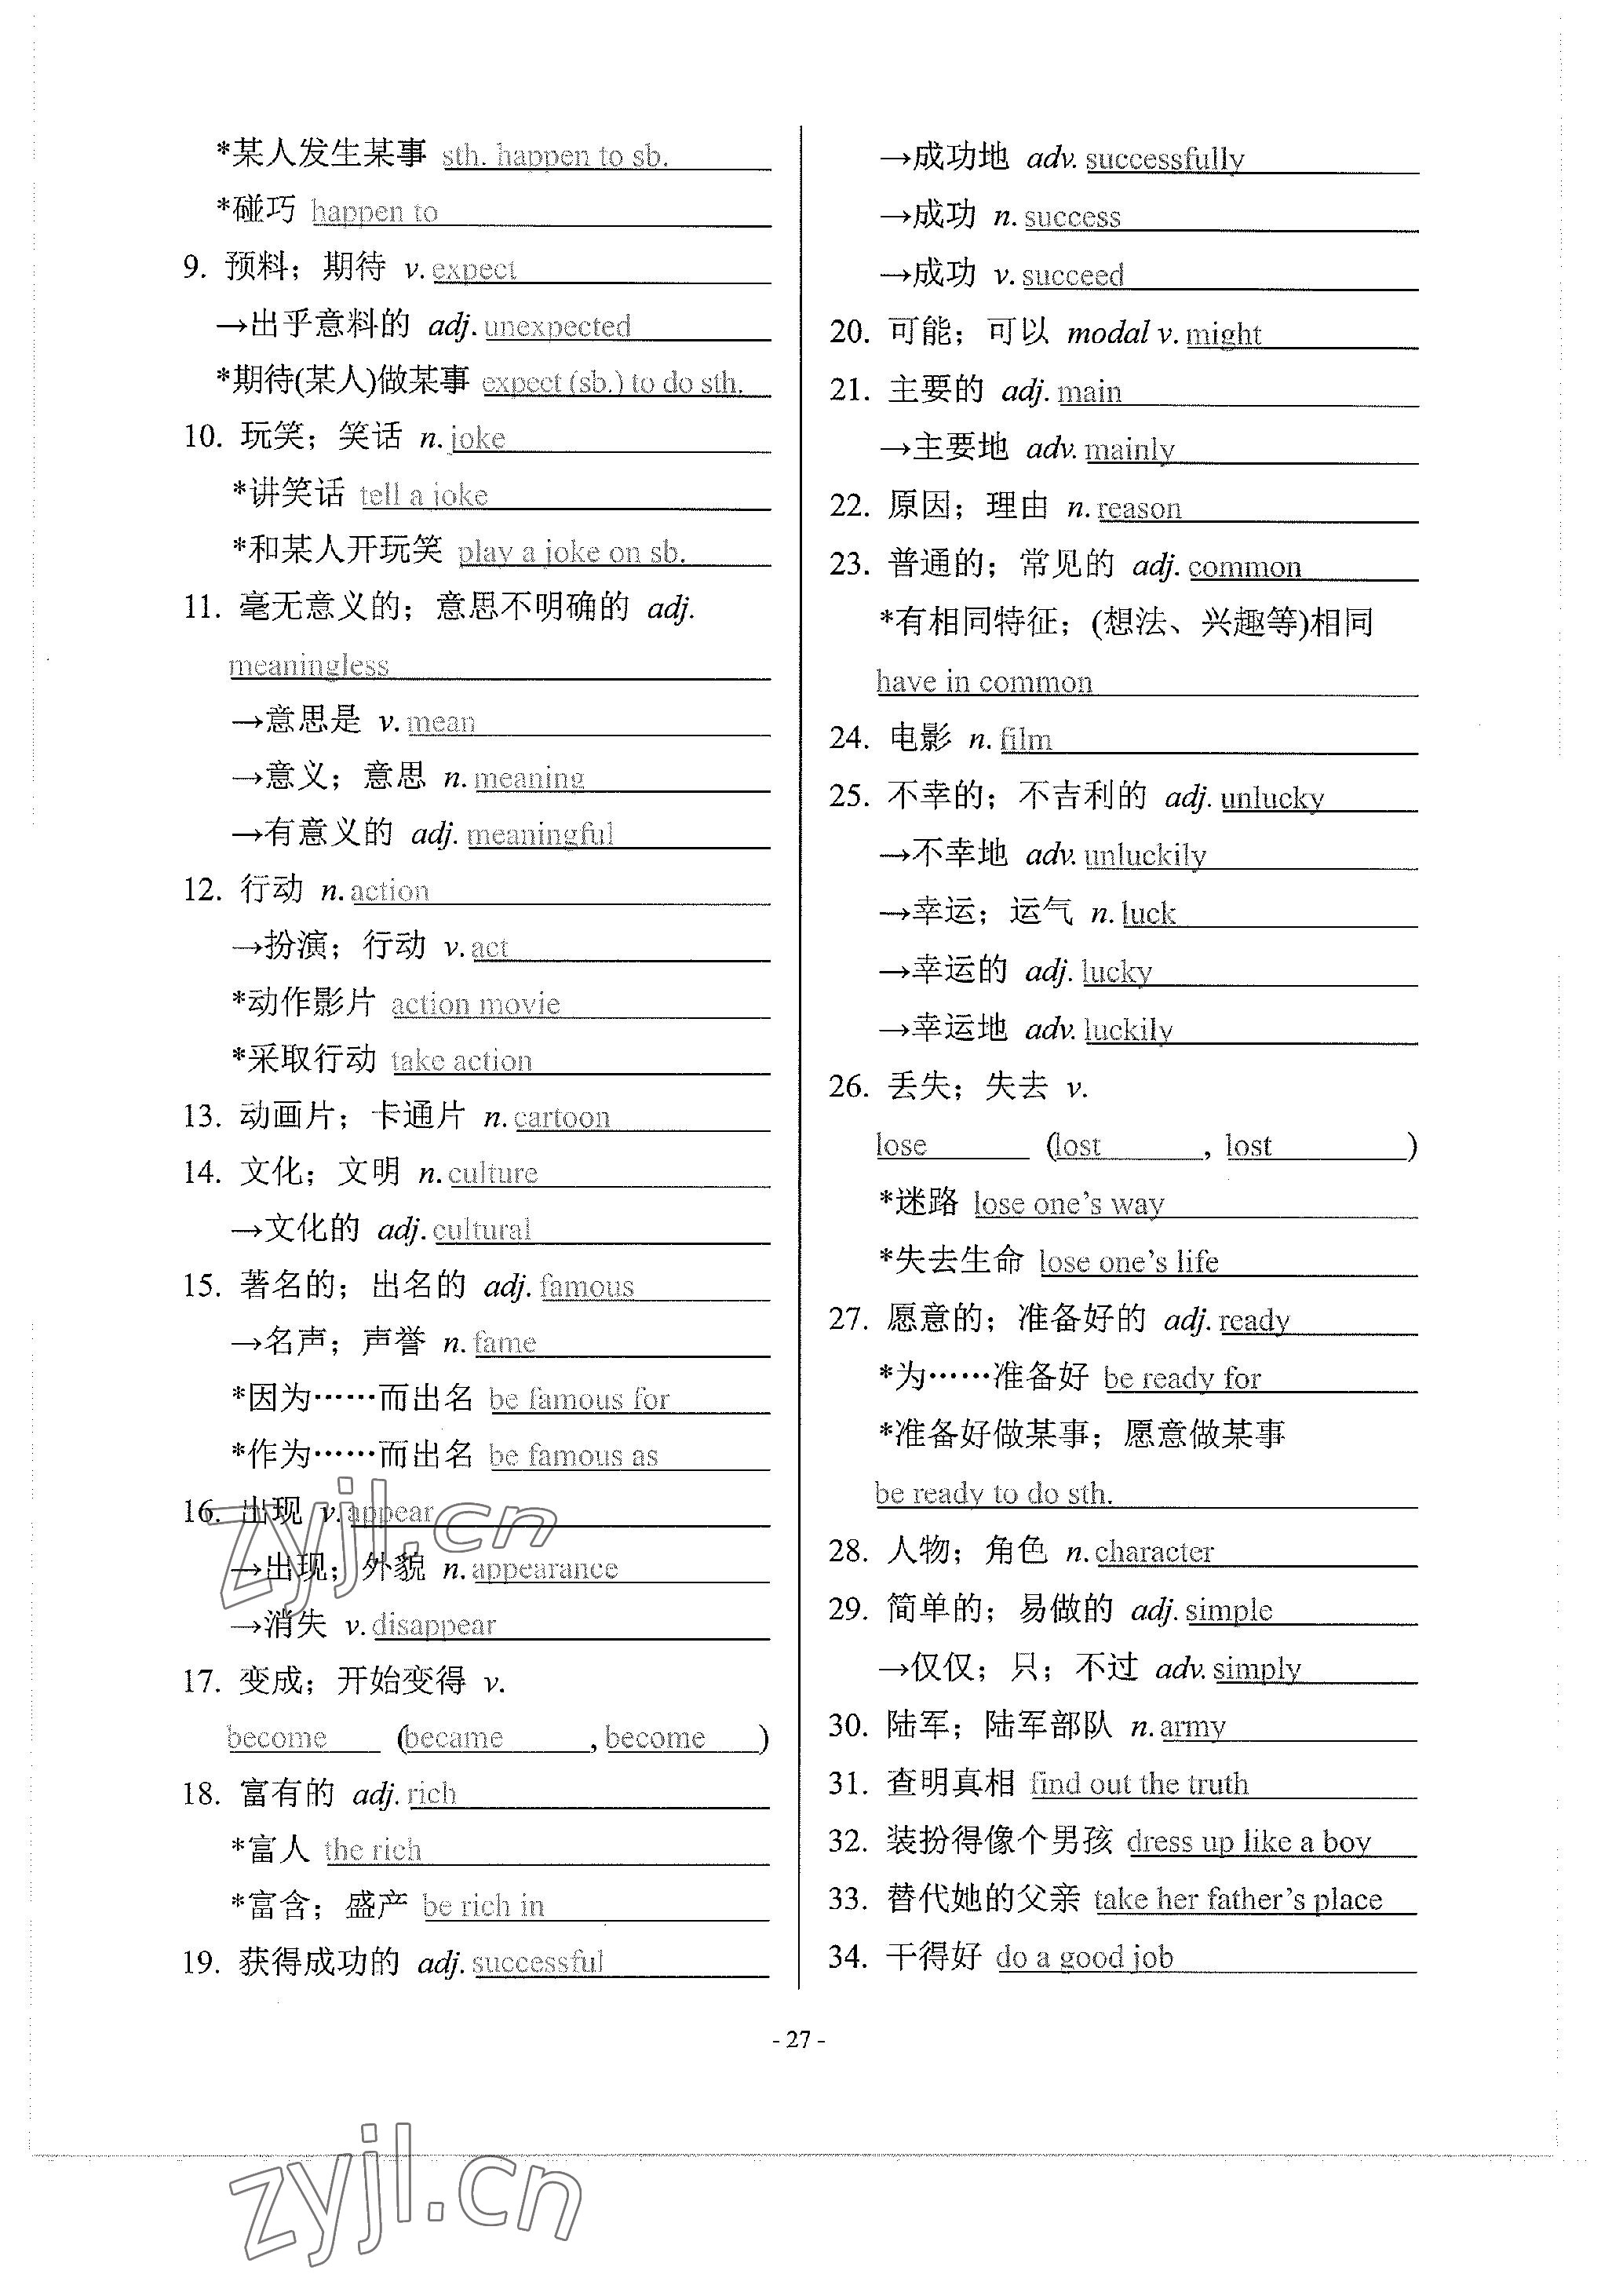 *某人发生某事 sth. happen to sb.
*碰巧 happen to
9. 预料；期待 v. expect
→出乎意料的 adj. unexpected
*期待(某人)做某事 expect (sb.) to do sth.
10. 玩笑；笑话 n. joke
*讲笑话 tell a joke
*和某人开玩笑 play a joke on sb.
11. 毫无意义的；意思不明确的 adj.
meaningless
→意思是 v. mean
→意义；意思 n. meaning
→有意义的 adj. meaningful
12. 行动 n. action
→扮演；行动 v. act
*动作影片 action movie
*采取行动 take action
13. 动画片；卡通片 n. cartoon
14. 文化；文明 n. culture
→文化的 adj. cultural
15. 著名的；出名的 adj. famous
→名声；声誉 n. fame
*因为……而出名 be famous for
*作为……而出名 be famous as
16. 出现 v. appear
→出现；外貌 n. appearance
→消失 v. disappear
17. 变成；开始变得 v.
become (became , become )
18. 富有的 adj. rich
*富人 the rich
*富含；盛产 be rich in
19. 获得成功的 adj. successful
→成功地 adv. successfully
→成功 n. success
→成功 v. succeed
20. 可能；可以 modal v. might
21. 主要的 adj. main
→主要地 adv. mainly
22. 原因；理由 n. reason
23. 普通的；常见的 adj. common
*有相同特征；(想法、兴趣等)相同
have in common
24. 电影 n. film
25. 不幸的；不吉利的 adj. unlucky
→不幸地 adv. unluckily
→幸运；运气 n. luck
→幸运的 adj. lucky
→幸运地 adv. luckily
26. 丢失；失去 v.
lose (lost , lost )
*迷路 lose one's way
*失去生命 lose one's life
27. 愿意的；准备好的 adj. ready
*为……准备好 be ready for
*准备好做某事；愿意做某事
be ready to do sth.
28. 人物；角色 n. character
29. 简单的；易做的 adj. simple
→仅仅；只；不过 adv. simply
30. 陆军；陆军部队 n. army
31. 查明真相 find out the truth
32. 装扮得像个男孩 dress up like a boy
33. 替代她的父亲 take her father's place
34. 干得好 do a good job
- 27 -
zyjl.cn
zyjl.cn